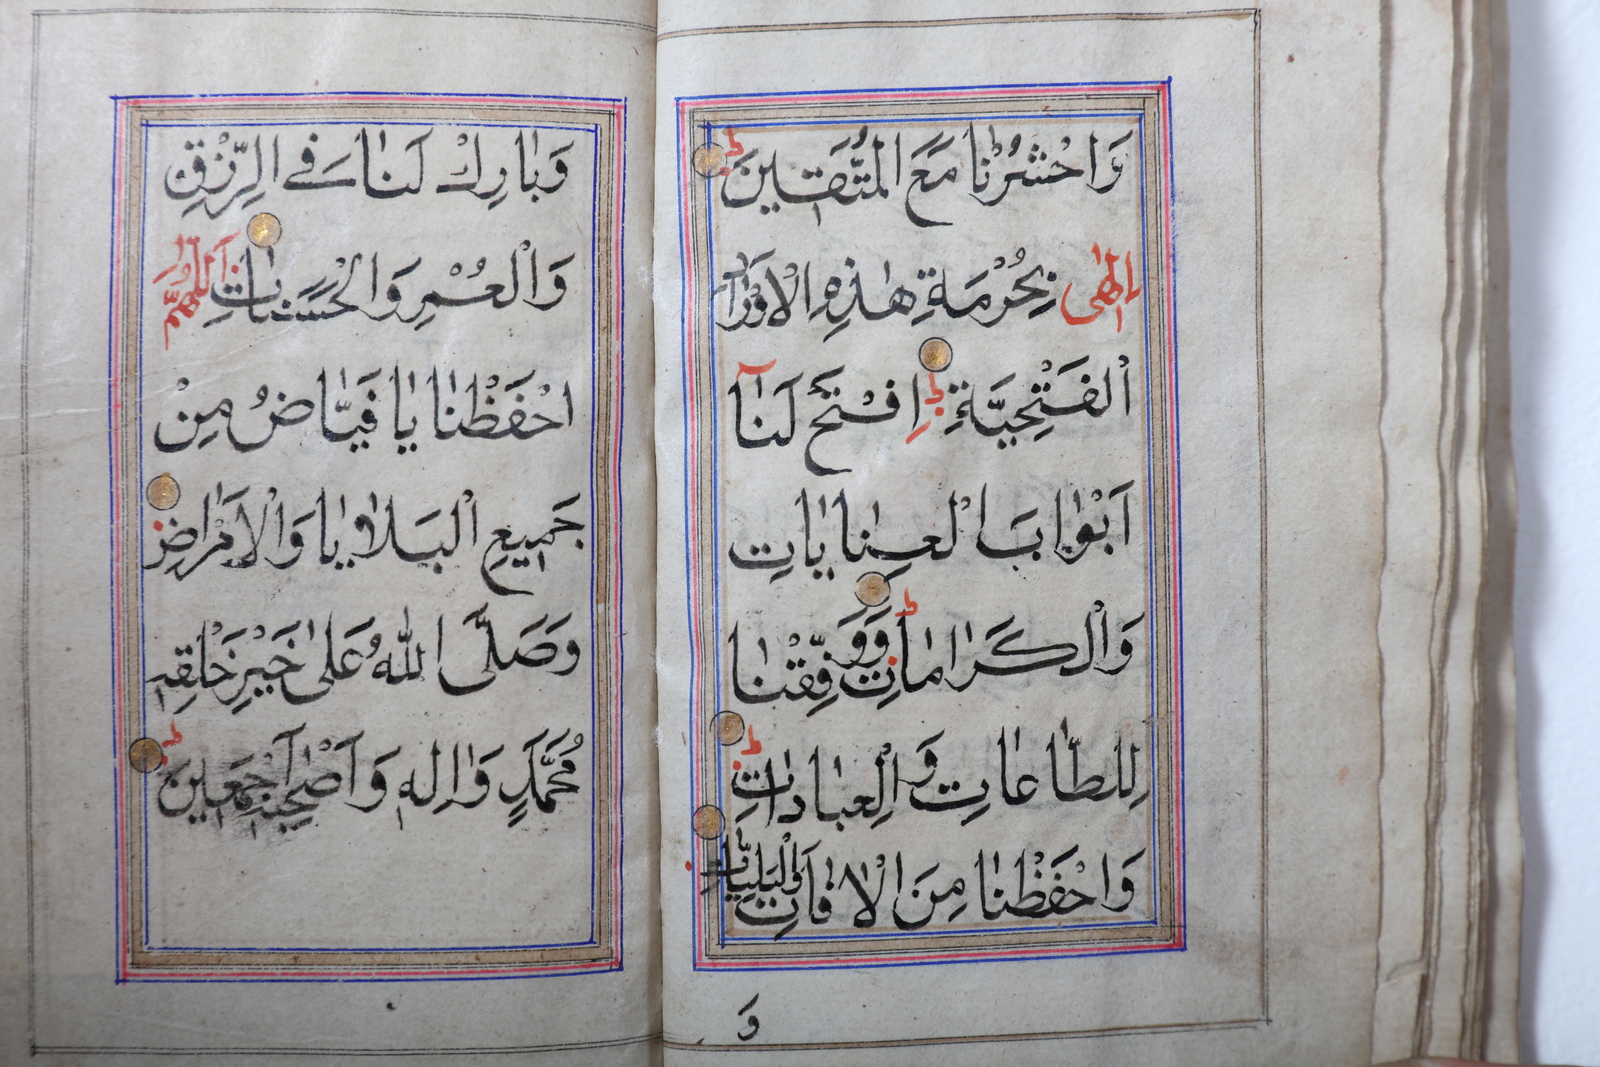 وَاحْشُرْنَا مَعَ الْمُتَّقِينَ
اِلٰهِى بِحُرْمَةِ هٰذِهِ الْاَوْرَادِ
الْفَتْحِيَّةِ اِفْتَحْ لَنَا
اَبْوَابَ الْعِنَايَاتِ
وَالْكَرَامَاتِ وَوَفِّقْنَا
لِلطَّاعَاتِ وَالْعِبَادَاتِ
وَاحْفَظْنَا مِنَ الْاٰفَاتِ وَالْبَلِيَّاتِ
وَ
وَبَارِكْ لَنَا فِي الرِّزْقِ
وَالْعُمْرِ وَالْحَسَنَاتِ اَللّٰهُمَّ
احْفَظْنَا يَا فَيَّاضُ مِنْ
جَمِيعِ الْبَلَايَا وَالْاَمْرَاضِ
وَصَلَّى اللّٰهُ عَلٰى خَيْرِ خَلْقِهِ
مُحَمَّدٍ وَاٰلِهِ وَاَصْحٰبِهِ اَجْمَعِينَ